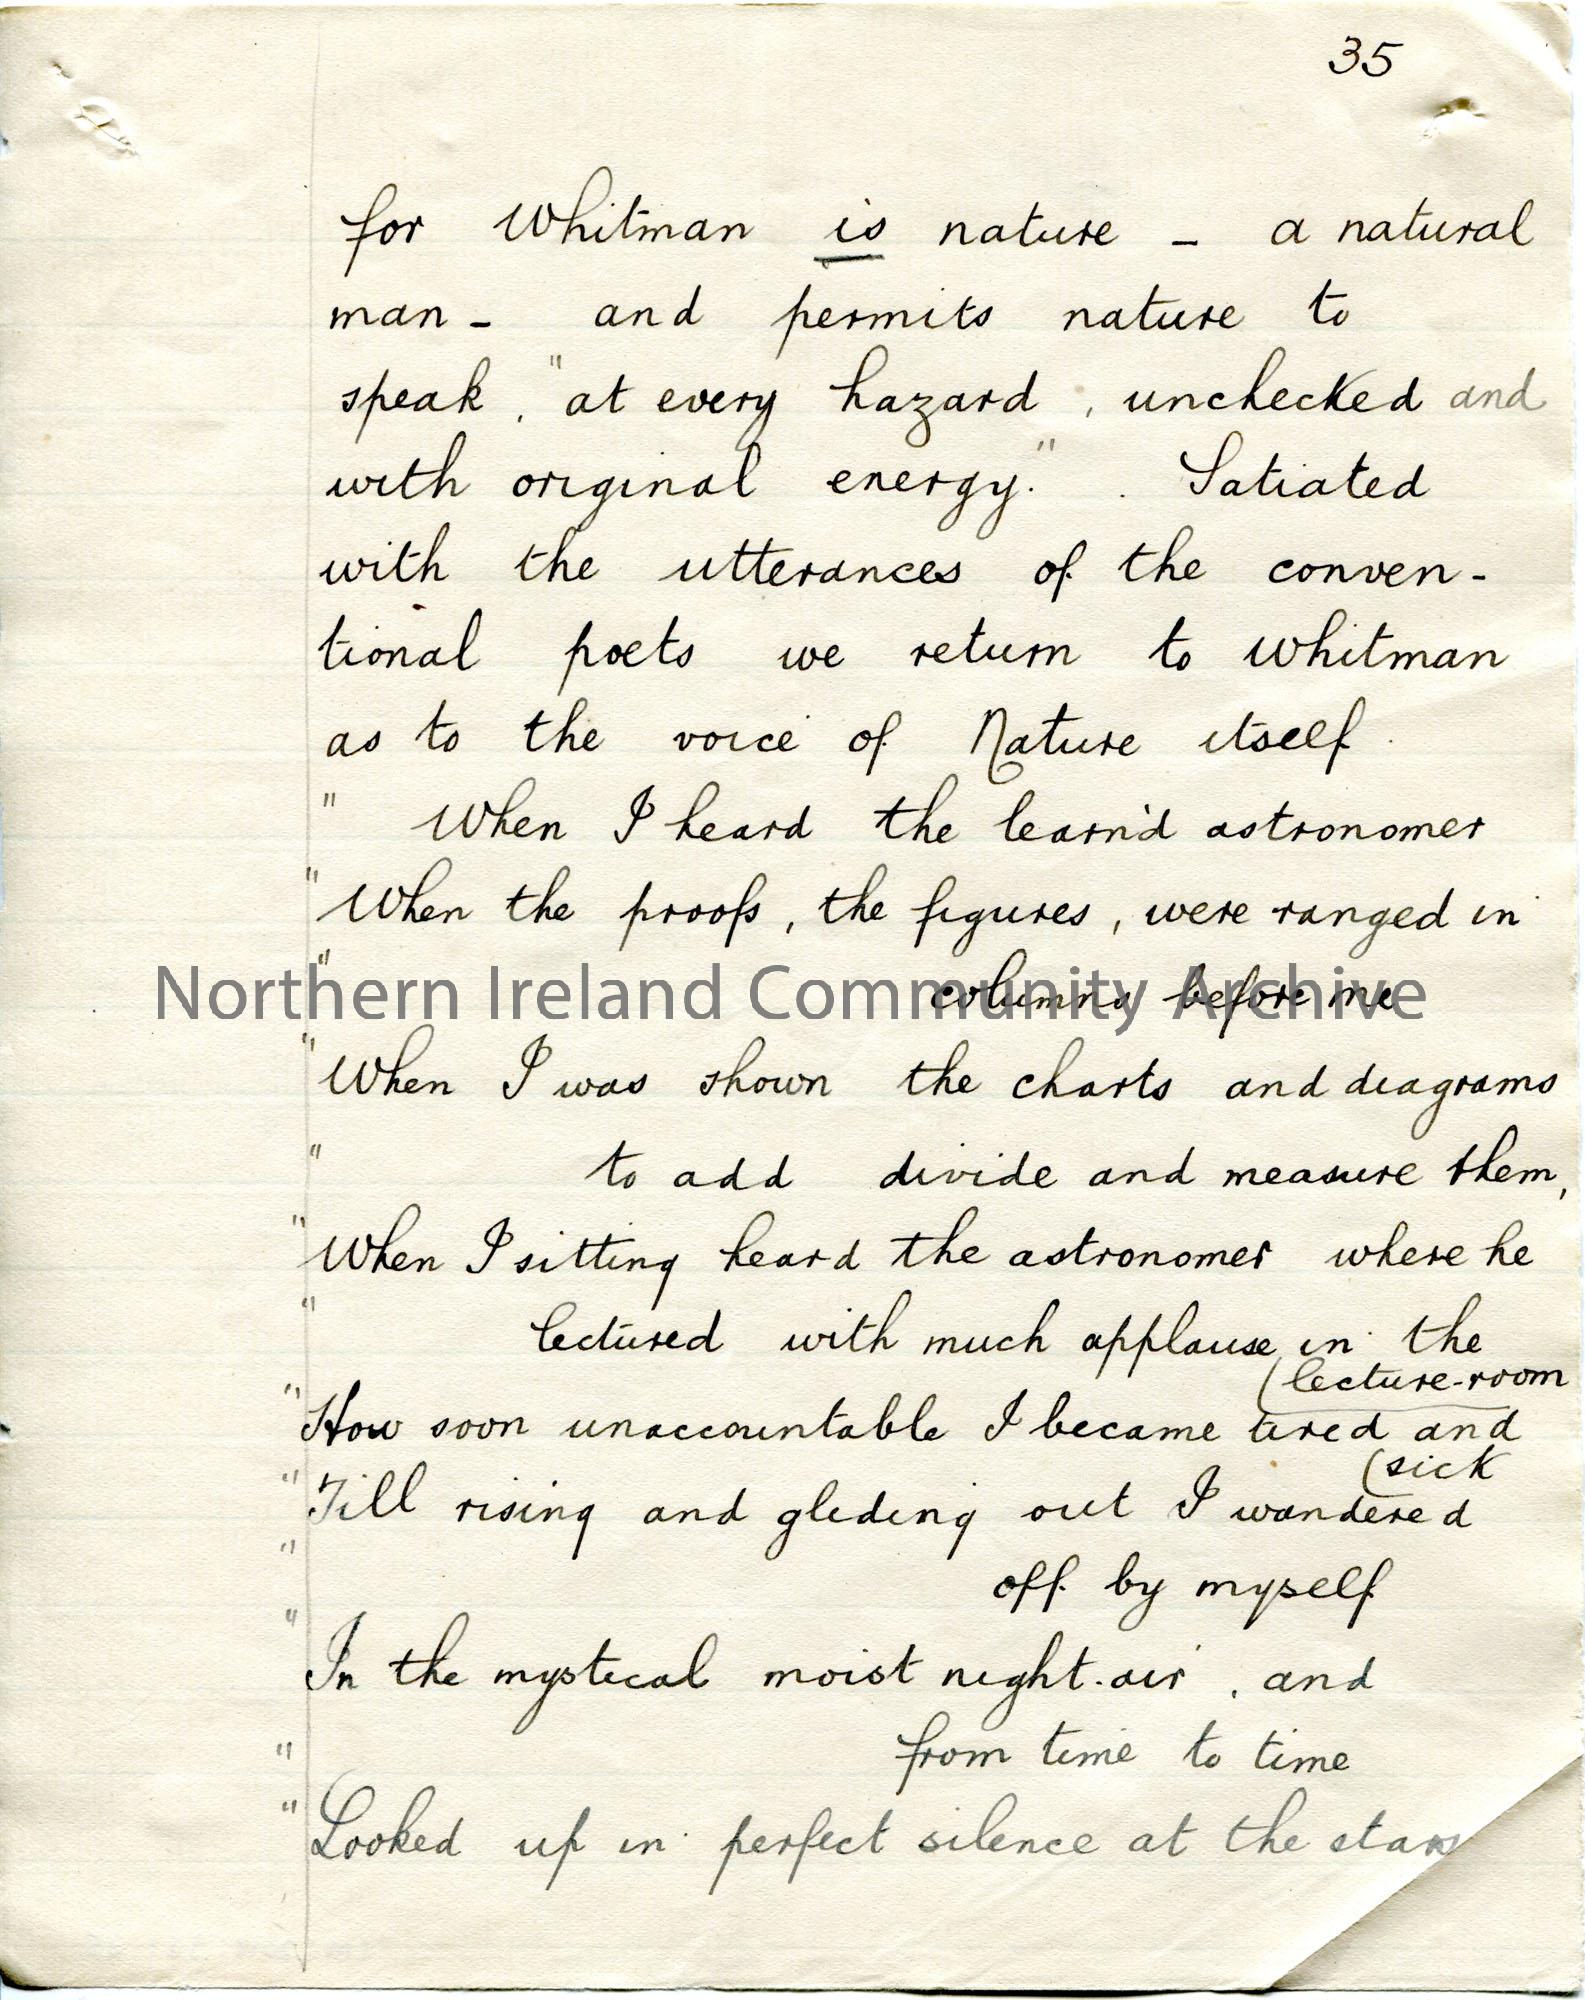 35
for Whitman is nature – a natural
man – and permits nature to
speak, "at every hazard, unchecked and
with original energy." . Satiated
with the utterances of the conven-
tional poets we return to Whitman
as to the voice of Nature itself.
" When I heard the learn'd astronomer
" When the proofs, the figures, were ranged in
" columns before me
Northern Ireland Community Archive
" When I was shown the charts and diagrams
" to add divide and measure them,
" When I sitting heard the astronomer where he
" lectured with much applause in the
(lecture-room
" How soon unaccountable I became tired and
(sick
" Till rising and gliding out I wandered
" off by myself
" In the mystical moist night-air, and
" from time to time
" Looked up in perfect silence at the stars